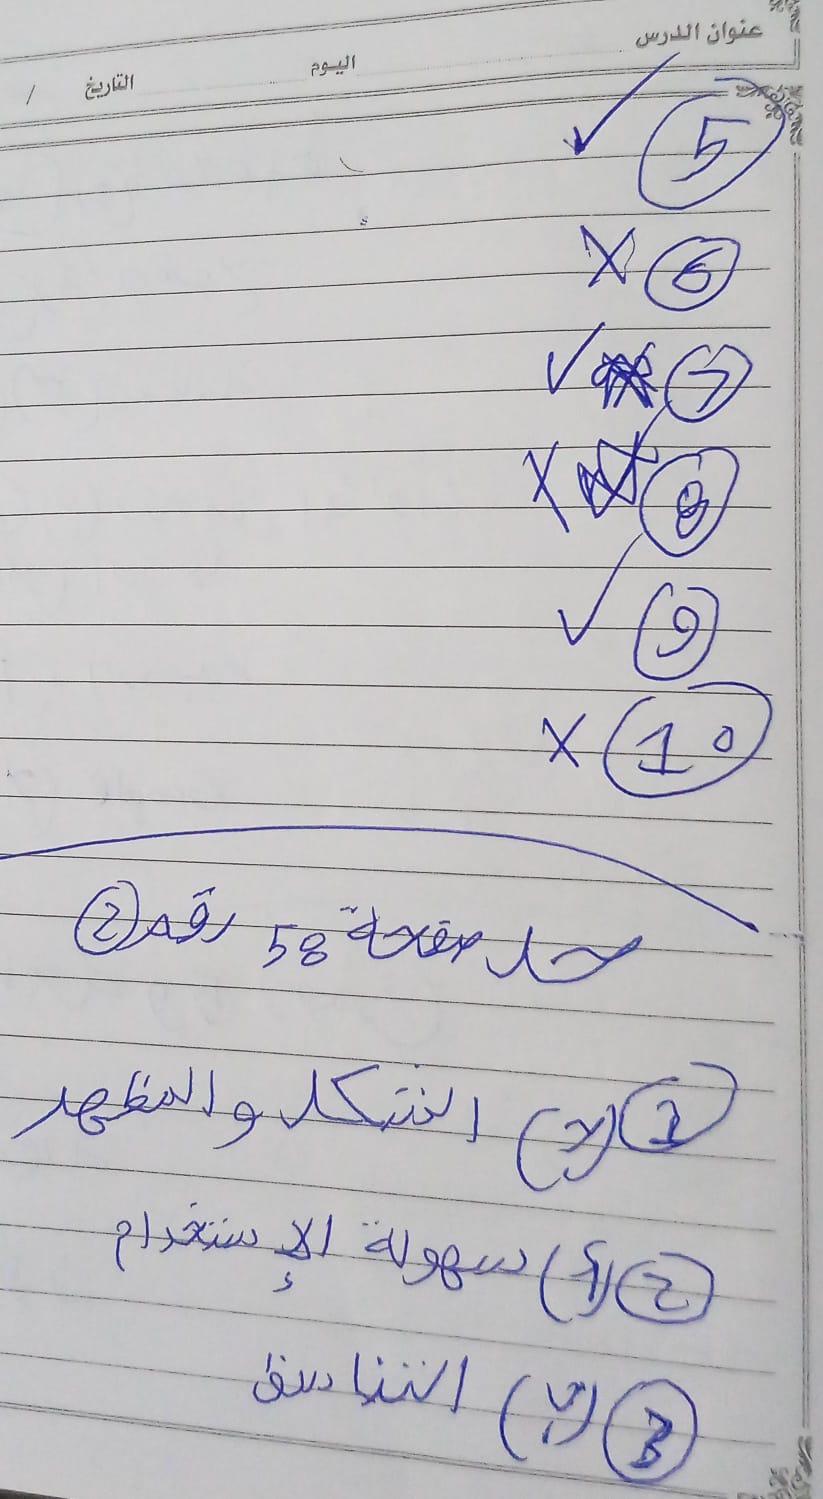 عنوان الدرس اليوم التاريخ /
5 ✓
6 X
7 ✓
8 X
9 ✓
10 X
حل صفحة 58 رقم 2
1 (د) الشكل والمظهر
2 (أ) سهولة الإستخدام
3 (ب) التناسق